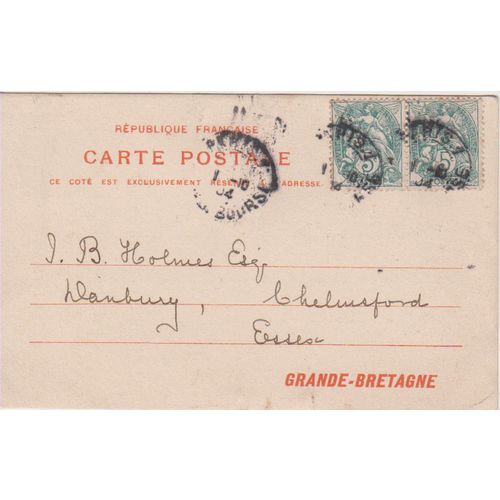 RÉPUBLIQUE FRANÇAISE
CARTE POSTALE
CE COTÉ EST EXCLUSIVEMENT RÉSERVÉ A L'ADRESSE.
PARIS
1
10
04
BOURSE
PARIS
04
5
PARIS
1
10
04
J. B. Holmes Esq.
Danbury, Chelmsford
Essex
GRANDE-BRETAGNE